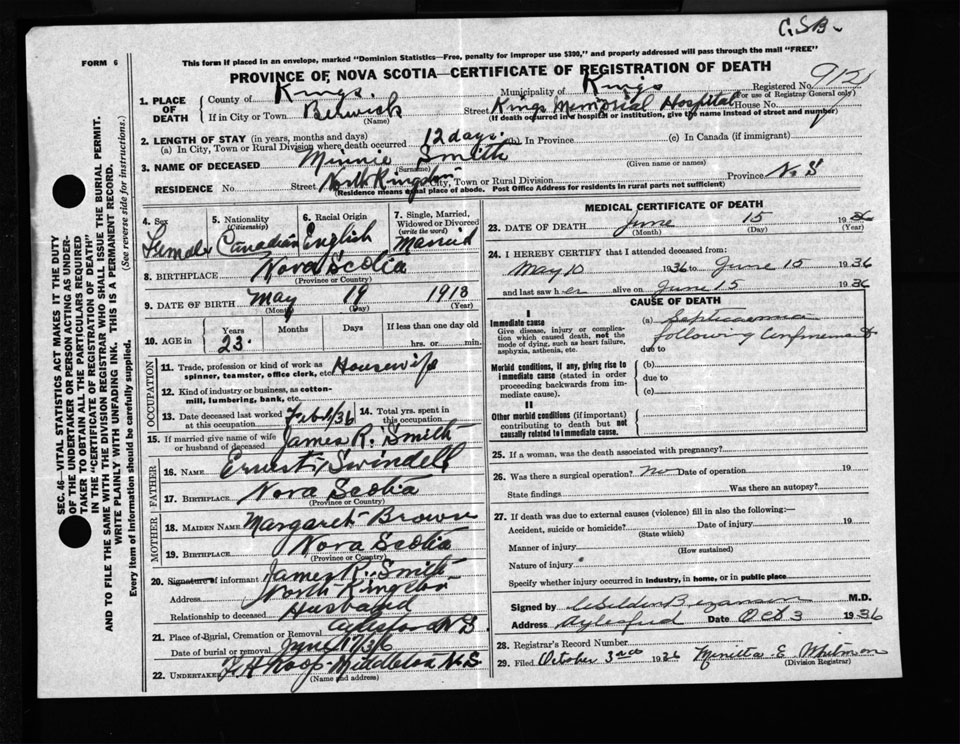 C.S.B.
FORM 6
This form if placed in an envelope, marked "Dominion Statistics—Free, penalty for improper use $300," and properly addressed will pass through the mail "FREE"
PROVINCE OF NOVA SCOTIA—CERTIFICATE OF REGISTRATION OF DEATH
Registered No. 912
(For use of Registrar General only)
1. PLACE OF DEATH County of Kings. Municipality of Kings
If in City or Town Berwick (Name) Street Kings Memorial Hospital House No.
(If death occurred in a hospital or institution, give the name instead of street and number)
2. LENGTH OF STAY (in years, months and days)
(a) In City, Town or Rural Division where death occurred 12 days. (b) In Province (c) In Canada (if immigrant)
3. NAME OF DECEASED Minnie Smith
(Surname) (Given name or names)
RESIDENCE No. Street North Kingston City, Town or Rural Division Province N.S
(Residence means usual place of abode. Post Office Address for residents in rural parts not sufficient)
4. Sex Female
5. Nationality (Citizenship) Canadian
6. Racial Origin English
7. Single, Married, Widowed or Divorced (write the word) Married
8. BIRTHPLACE Nova Scotia
(Province or Country)
9. DATE OF BIRTH May 19 1913
(Month) (Day) (Year)
10. AGE in Years 23. Months Days If less than one day old hrs. or min.
OCCUPATION
11. Trade, profession or kind of work as spinner, teamster, office clerk, etc. Housewife
12. Kind of industry or business, as cotton-mill, lumbering, bank, etc.
13. Date deceased last worked at this occupation Feb 1/36
14. Total yrs. spent in this occupation
15. If married give name of wife or husband of deceased James R. Smith
FATHER
16. NAME Ernest Swindell
17. BIRTHPLACE Nova Scotia
(Province or Country)
MOTHER
18. MAIDEN NAME Margaret Brown
19. BIRTHPLACE Nova Scotia
(Province or Country)
20. Signature of informant James R. Smith
Address North Kingston
Relationship to deceased Husband
21. Place of Burial, Cremation or Removal Aylesford N S
Date of burial or removal June 17/36
22. UNDERTAKER Middleton N.S
(Name and address)
MEDICAL CERTIFICATE OF DEATH
23. DATE OF DEATH June 15 1936
(Month) (Day) (Year)
24. I HEREBY CERTIFY that I attended deceased from:
May 10 1936 to June 15 1936
and last saw her alive on June 15 1936
CAUSE OF DEATH
I
Immediate cause
Give disease, injury or complication which caused death, not the mode of dying, such as heart failure, asphyxia, asthenia, etc.
(a) Septicaemia
following Confinement
due to
Morbid conditions, if any, giving rise to immediate cause (stated in order proceeding backwards from immediate cause).
(b)
due to
(c)
II
Other morbid conditions (if important) contributing to death but not causally related to immediate cause.
25. If a woman, was the death associated with pregnancy?
26. Was there a surgical operation? no Date of operation 19
State findings Was there an autopsy?
27. If death was due to external causes (violence) fill in also the following:—
Accident, suicide or homicide? Date of injury 19
(State which)
Manner of injury
(How sustained)
Nature of injury
Specify whether injury occurred in industry, in home, or in public place
Signed by M.D.
Address Aylesford Date Oct 3 1936
28. Registrar's Record Number
29. Filed October 3 1936 Minetta E. Whitman
(Division Registrar)
SEC. 46—VITAL STATISTICS ACT MAKES IT THE DUTY
OF THE UNDERTAKER OR PERSON ACTING AS UNDERTAKER TO OBTAIN ALL THE PARTICULARS REQUIRED
IN THE "CERTIFICATE OF REGISTRATION OF DEATH"
AND TO FILE THE SAME WITH THE DIVISION REGISTRAR WHO SHALL ISSUE THE BURIAL PERMIT.
WRITE PLAINLY WITH UNFADING INK. THIS IS A PERMANENT RECORD.
Every item of information should be carefully supplied. (See reverse side for instructions.)